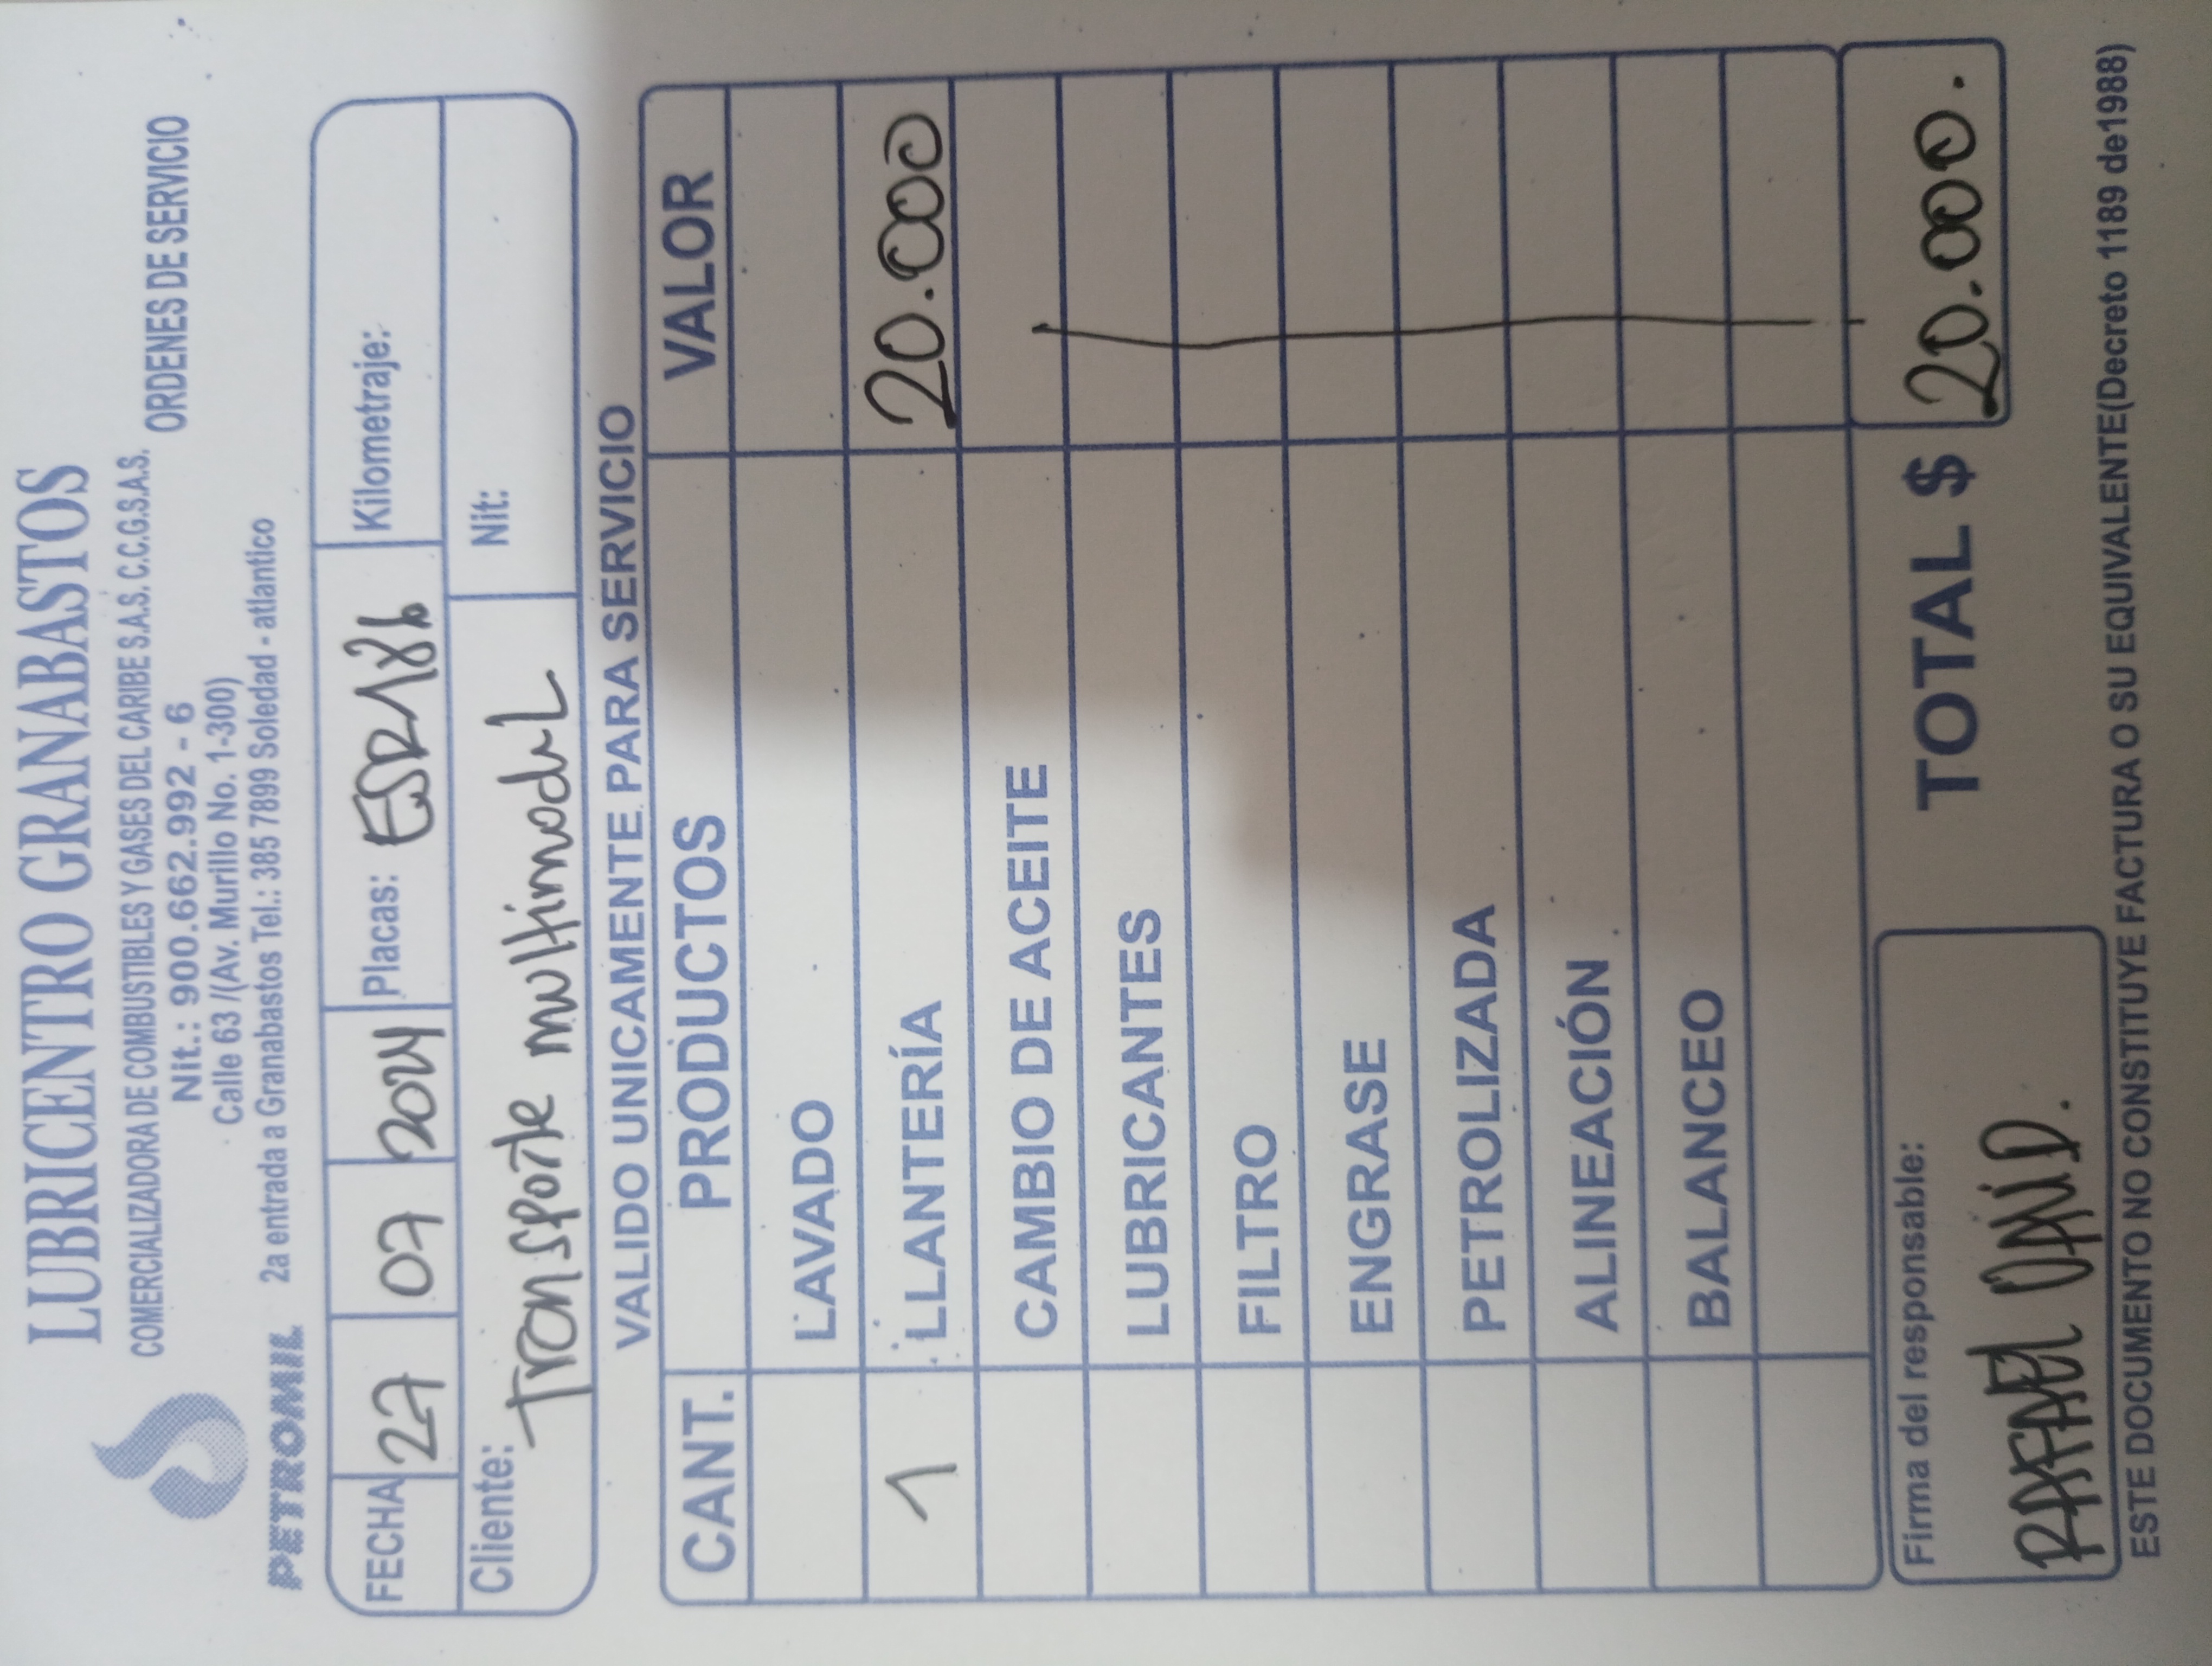 LUBRICENTRO GRANABASTOS
COMERCIALIZADORA DE COMBUSTIBLES Y GASES DEL CARIBE S.A.S. C.C.G.S.A.S.
Nit.: 900.662.992 - 6
ORDENES DE SERVICIO
Calle 63 /(Av. Murillo No. 1-300)
PETROMIL 2a entrada a Granabastos Tel.: 385 7899 Soledad - atlantico
FECHA 27 07 2024 Placas: ESR186 Kilometraje:
Cliente: Transporte multimodal Nit:
VALIDO UNICAMENTE PARA SERVICIO
CANT. PRODUCTOS VALOR
LAVADO
1 LLANTERÍA 20.000
CAMBIO DE ACEITE
LUBRICANTES
FILTRO
ENGRASE
PETROLIZADA
ALINEACIÓN
BALANCEO
Firma del responsable: TOTAL $ 20.000.
RAFAEL
ESTE DOCUMENTO NO CONSTITUYE FACTURA O SU EQUIVALENTE(Decreto 1189 de1988)